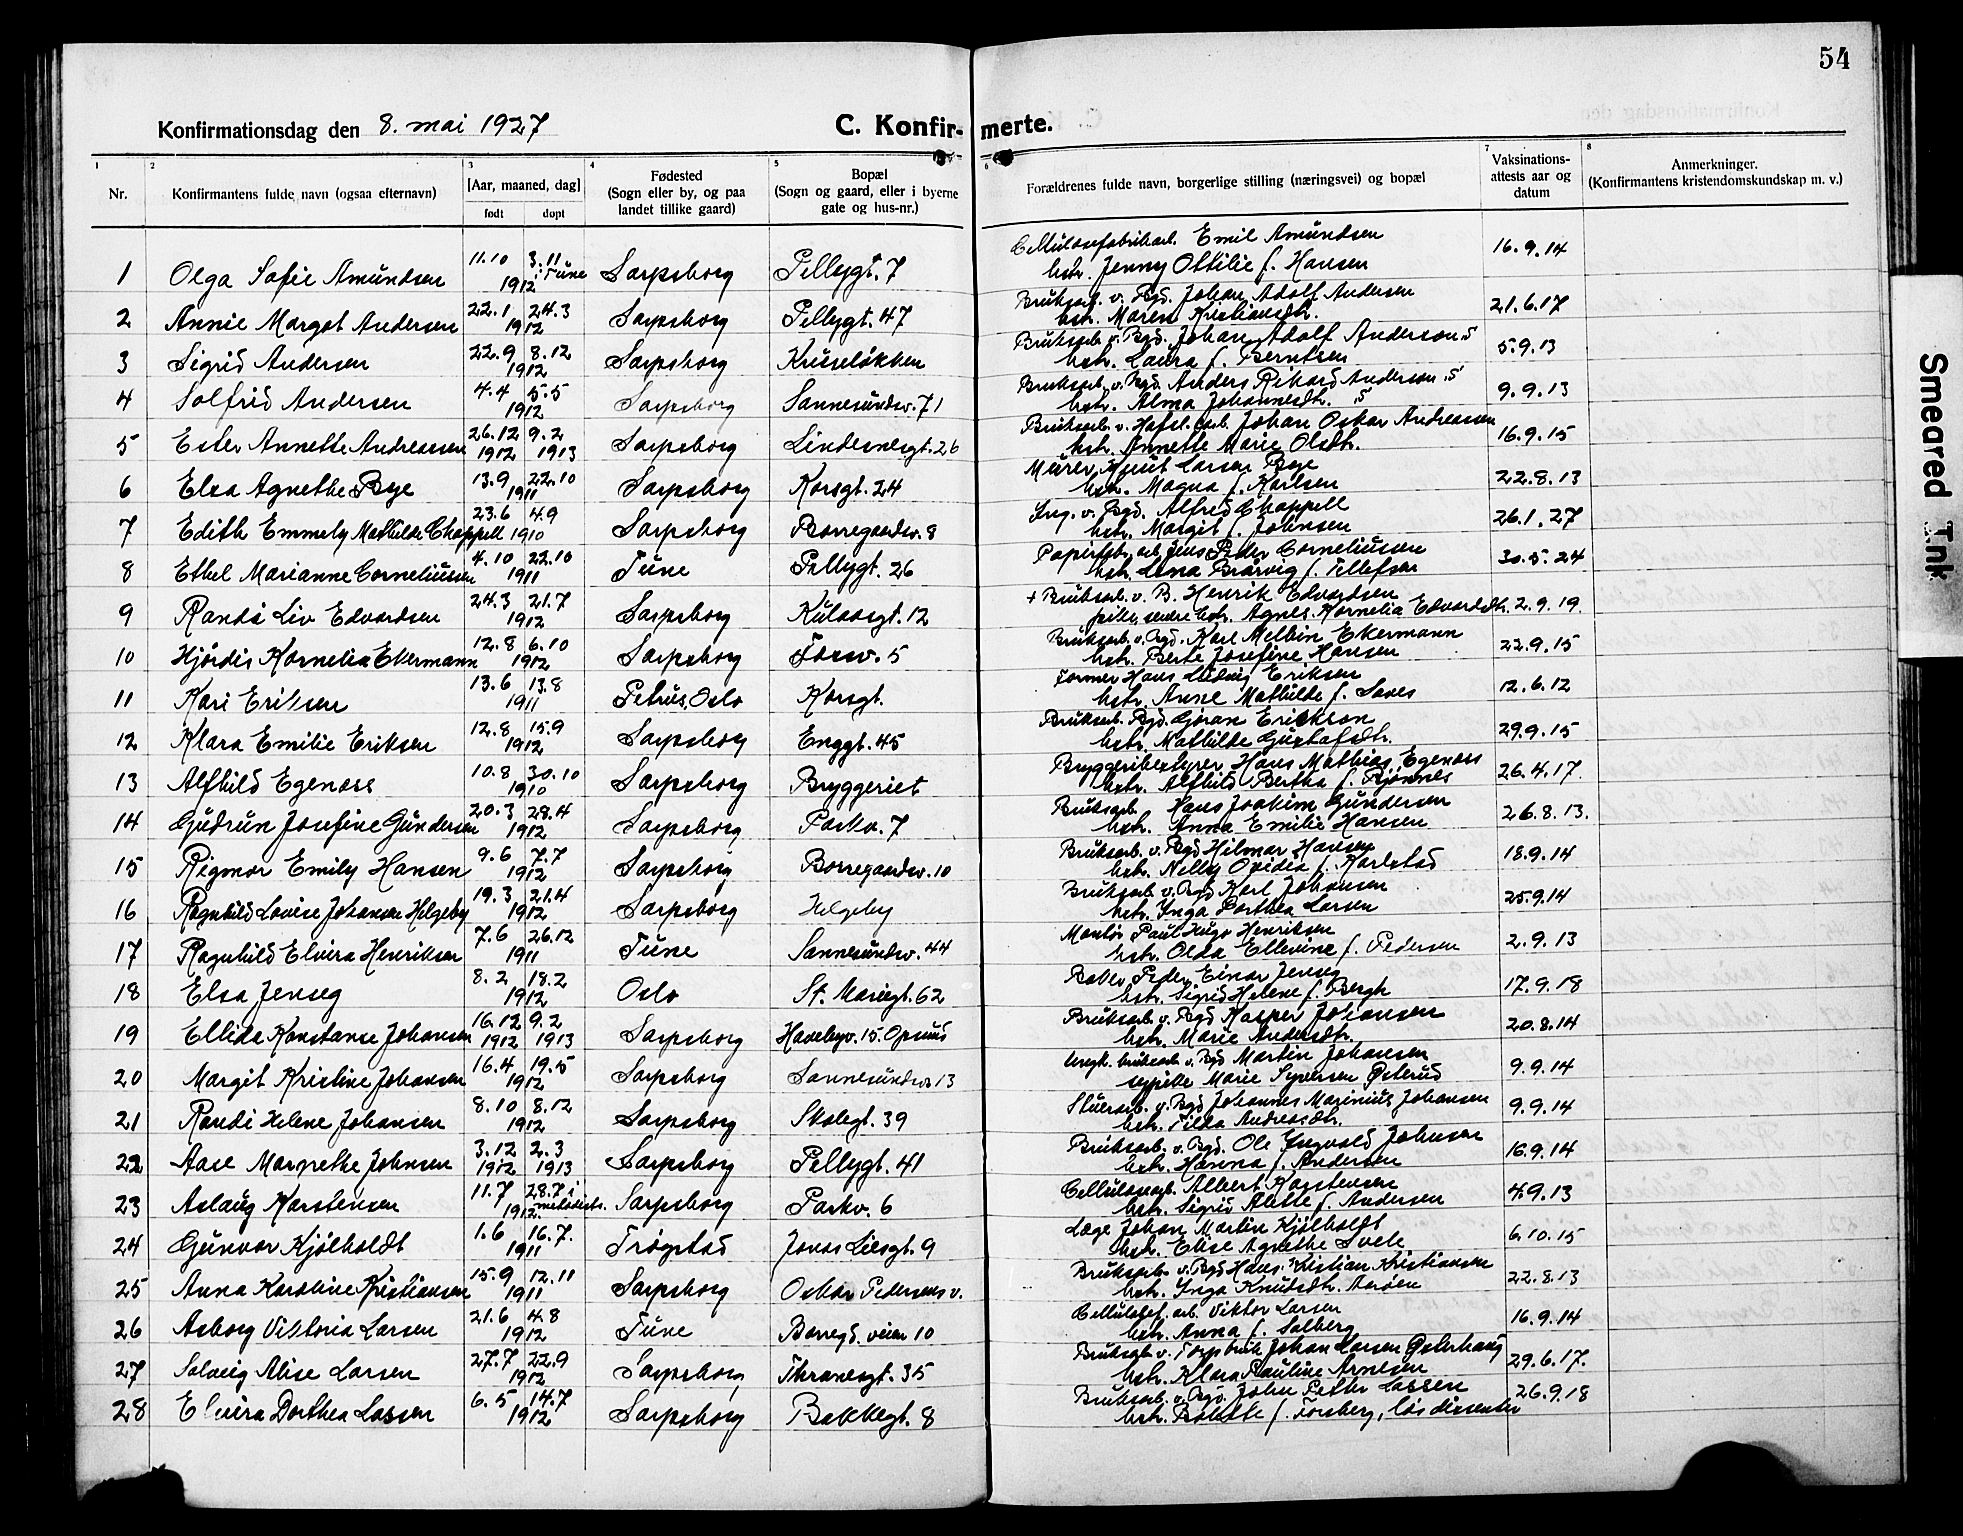 54
Konfirmationsdag den 8. mai 1927
C. Konfir-merte.
1 2 3 4 5 6 7 8
Nr. Konfirmantens fulde navn (ogsaa efternavn) [Aar, maaned, dag] født døpt Fødested (Sogn eller by, og paa landet tillike gaard) Bopæl (Sogn og gaard, eller i byerne gate og hus-nr.) Forældrenes fulde navn, borgerlige stilling (næringsvei) og bopæl Vaksinations-attests aar og datum Anmerkninger. (Konfirmantens kristendomskundskap m. v.)
1 Olga Sofie Amundsen 11.10 3.11 i Tune 1912 Sarpsborg Pellygt. 7 Cellulosefabrikarb. Emil Amundsen hstr. Jenny Ottilie f. Hansen 16.9.14
2 Annie Margot Andersen 22.1 24.3 1912 Sarpsborg Pellygt. 47 Bruksarb. v. Bgd. Johan Adolf Andersen hstr. Maren Kristiansdtr. 21.6.17
3 Sigrid Andersen 22.9 8.12 1912 Sarpsborg Kruseløkken Bruksarb. v. Bgd. Johan Adolf Anderson hstr. Laura f. Berntsen 5.9.13
4 Solfrid Andersen 4.4 5.5 1912 Sarpsborg Sannesundsv. 71 Bruksarb. v. Bgd. Anders Rikard Anderson hstr. Alma Johannesdtr. 9.9.13
5 Ester Annette Andreassen 26.12 1912 9.2 1913 Sarpsborg Lindesnesgt. 26 Bruksarb. v. Hafsl. Johan Oskar Andreassen hstr. Annette Marie Olsdtr. 16.9.15
6 Elsa Agnethe Bye 13.9 22.10 1911 Sarpsborg Korsgt. 24 Murer Knut Larsen Bye hstr. Magna f. Karlsen 22.8.13
7 Edith Emmely Mathilde Chappell 23.6 4.9 1910 Sarpsborg Borregaardsv. 8 Ing. v. Bgd. Alfred Chappell hstr. Margit f. Johnsen 26.1.27
8 Ethel Marianne Corneliussen 4.10 22.10 1911 Tune Pellygt. 26 Papirfabr. arb. Jens Peder Corneliussen hstr. Lena Brärvig f. Tellefsen 30.5.24
9 Randi Liv Edvardsen 24.3 21.7 1912 Sarpsborg Kulaasgt. 12 + Bruksarb. v. B. Henrik Edvardsen hstr. Agnes Kornelia Edvardsdtr. 2.9.19
10 Hjördis Kornelia Ekermann 12.8 6.10 1912 Sarpsborg Tosev. 5 Bruksarb. v. Bgd. Karl Melbin Ekermann hstr. Berte Josefine Hansen 22.9.15
11 Kari Eriksen 13.6 13.8 1911 Petrus, Oslo Korsgt. Former Hans Ludvig Eriksen hstr. Anne Mathilde f. Saxes 12.6.12
12 Klara Emilie Eriksen 12.8 15.9 1912 Sarpsborg Enggt. 45 Bruksarb. Bgd. Göran Erikson hstr. Mathilde Gustafsdtr. 29.9.15
13 Alfhild Egenæss 10.8 30.10 1910 Sarpsborg Bryggeriet Bryggeribestyrer Hans Mathias Egenæss hstr. Alfhild Bertha f. Bjønnes 26.4.17.
14 Gudrun Josefine Gundersen 20.3 28.4 1912 Sarpsborg Parkv. 7 Bruksarb. Hans Joakim Gundersen hstr. Anna Emilie Hansen 26.8.13.
15 Rigmor Emily Hansen 9.6 7.7 1912 Sarpsborg Borregaardsv. 10 Bruksarb. v. Bgd Hilmar Hansen hstr. Nelly Ovidia f. Karlstad 18.9.14
16 Ragnhild Lovise Johansen Helgeby 19.3 21.4 1912 Sarpsborg Helgeby Bruksarb. v. Bgd Karl Johansen hstr. Inga Dorthea Larsen 25.9.14
17 Ragnhild Elvira Henriksen 7.6 26.12 1911 Tune Sannesundsv. 44 Montør Paul Hugo Henriksen hstr. Olda Ellevine f. Pedersen 2.9.13
18 Elsa Jenseg 8.2 18.2 1912 Oslo St. Mariegt. 62 Peder Einar Jenseg hstr. Sigrid Helene f. Bergh 17.9.18
19 Ellida Konstanse Johansen 16.12 1912 9.2 1913 Sarpsborg Havebyv. 15. Opsund Bruksarb. v. Bgd Kasper Johansen hstr. Marie Andersdtr. 20.8.14
20 Margit Kristine Johansen 16.4 19.5 1912 Sarpsborg Sannesundsv. 13 Ungk. bruksarb. v. Bgd Martin Johansen sypike Marie Syversen Østerud 9.9.14
21 Randi Helene Johansen 8.10 8.12 1912 Sarpsborg Skolegt. 39 Stuerarb. v. Bgd Johannes Marinius Johansen hstr. Tilda Andreasdtr. 9.9.14
22 Aase Margrethe Johnsen 3.12 1912 2.3 1913 Sarpsborg Pellygt. 41 Bruksarb. v. Bgd. Ole Ingvald Johnsen hstr. Hanna f. Andersen 16.9.14
23 Aslaug Karstensen 11.7 28.7 i metodistk. 1912 Sarpsborg Parkv. 6 Cellulosearb. Albert Karstensen hstr. Sigrid Alette f. Andersen 4.9.13
24 Gunvor Kjølholdt 1.6 16.7. 1911 Trøgstad Jonas Liesgt. 9 Læge Johan Martin Kjølholdt hstr. Elise Agnethe Svele 6.10.15
25 Anna Karoline Kristiansen 15.9 12.11 1911 Sarpsborg Oskar Pedersens v. Bruksarb. v. Bgd Hans Kristian Kristiansen hstr. Inga Knutsdtr. Aarøen 22.8.13
26 Asborg Viktoria Larsen 21.6 4.8 1912 Tune Borregd. veien 10 Cellulosef. arb. Viktor Larsen hstr. Anna f. Solberg 16.9.14
27 Solveig Alise Larsen 27.7 22.9 1912 Sarpsborg Thranesgt. 35 Bruksarb. v. Torpbruk Johan Larsen Østerhaug hstr. Klara Pauline Arnesen 29.6.17.
28 Elvira Dorthea Lassen 6.5 14.7 1912 Sarpsborg Bakkegt. 8 Bruksarb. v. Bgd. John Petter Lassen hstr. Bolette f. Forsberg, løs dissenter 26.9.18
Smeared Ink